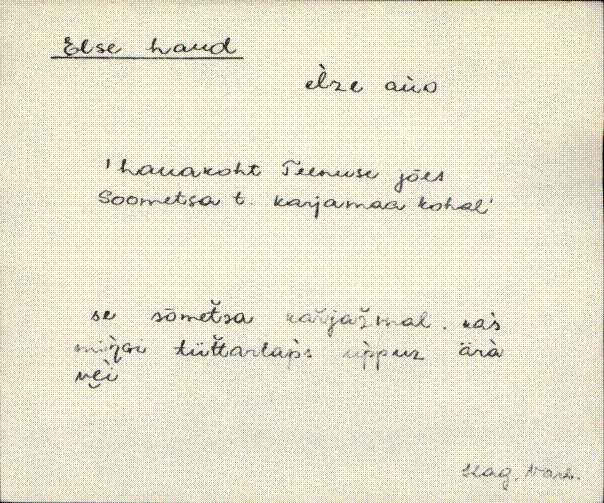 Else haud
èlze aùo
'hauakoht Teenuse jões
Soometsa t. karjamaa kohal'
se sōmetsa karjažmal. kàs
tüttarlaps ùppuz ärà
vèi